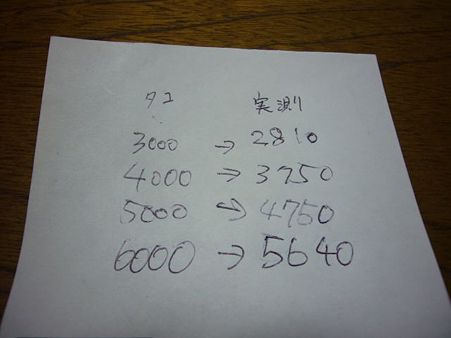 タコ 実測
3000 → 2810
4000 → 3750
5000 → 4750
6000 → 5640